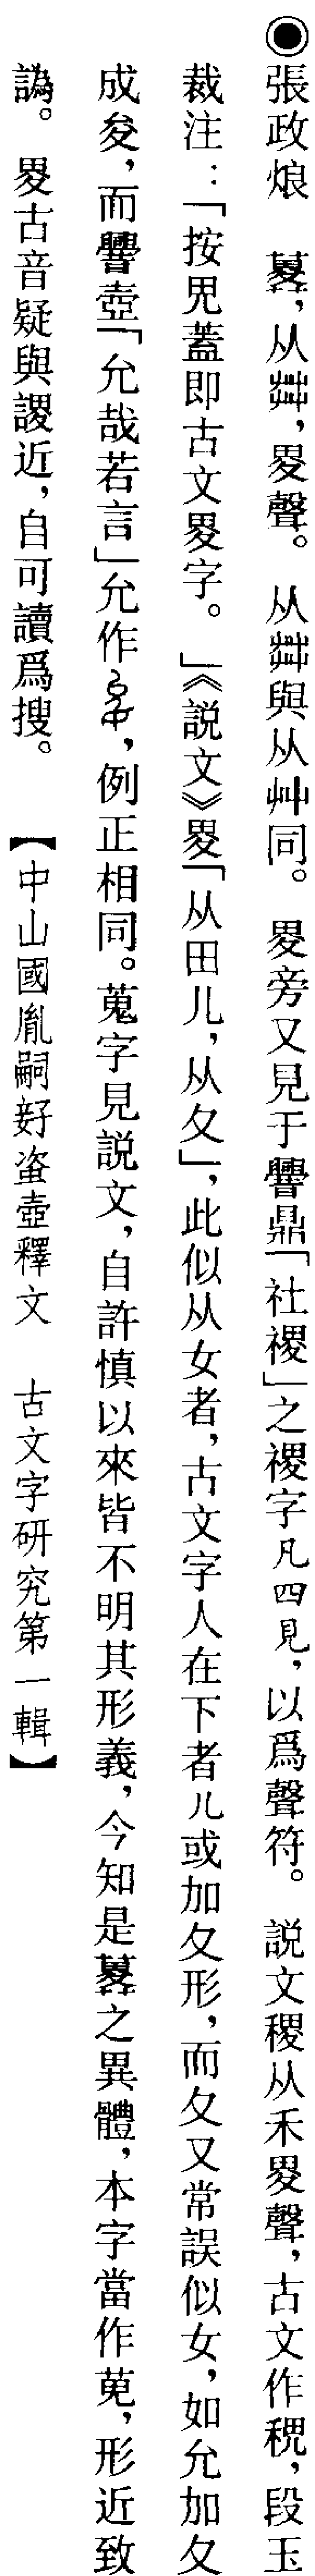 ◉張政烺　，从茻，畟聲。从茻與从艸同。畟旁又見于鼎「社禝」之禝字凡四見，以爲聲符。説文稷从禾畟聲，古文作𥝌，段玉
裁注：「按𠒇蓋即古文畟字。」《説文》畟「从田儿，从夊」，此似从女者，古文字人在下者儿或加夊形，而夊又常誤似女，如允加夊
成夋，而壺「允哉若言」允作，例正相同。蒐字見説文，自許慎以來皆不明其形義，今知是之異體，本字當作，形近致
譌。畟古音疑與謖近，自可讀爲搜。　【中山國胤嗣𡚱盗壺釋文　古文字研究第一輯】